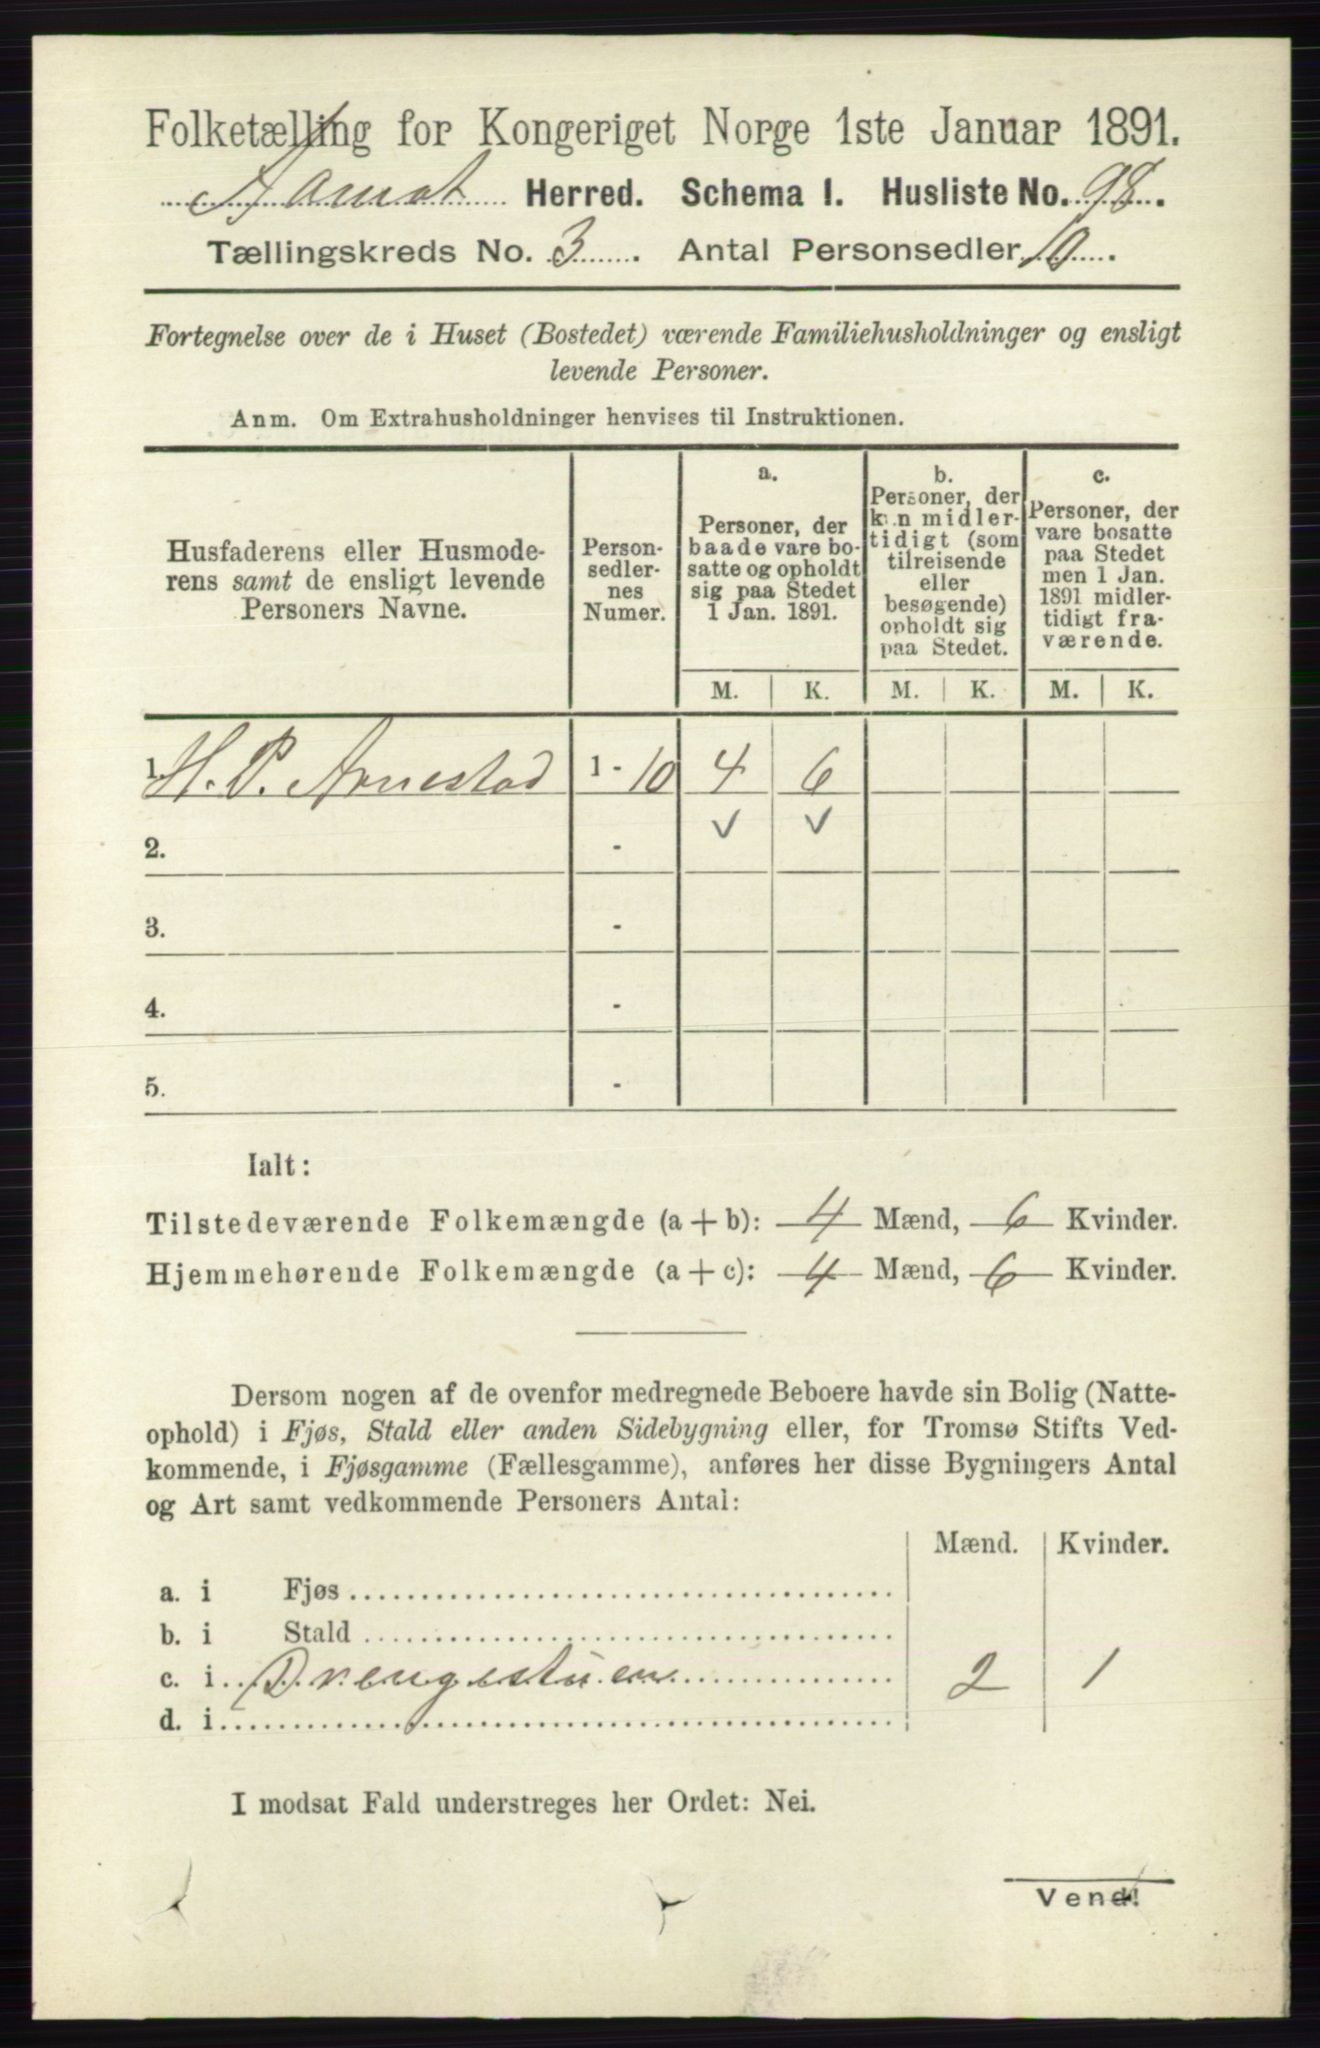 Folketælling for Kongeriget Norge 1ste Januar 1891.
Aamot Herred. Schema I. Husliste No. 98.
Tællingskreds No. 3. Antal Personsedler 10.
Fortegnelse over de i Huset (Bostedet) værende Familiehusholdninger og ensligt
levende Personer.
Anm. Om Extrahusholdninger henvises til Instruktionen.
Husfaderens eller Husmode-
rens samt de ensligt levende
Personers Navne.
Person-
sedler-
nes
Numer.
a.
Personer, der
baade vare bo-
satte og opholdt
sig paa Stedet
1 Jan. 1891.
b.
Personer, der
kun midler-
tidigt (som
tilreisende
eller
besøgende)
opholdt sig
paa Stedet.
c.
Personer, der
vare bosatte
paa Stedet
men 1 Jan.
1891 midler-
tidigt fra-
værende.
M. K. M. K. M. K.
1. H. P. Arnestad 1 - 10 4 6
✓ ✓
2. -
3. -
4. -
5. -
Ialt:
Tilstedeværende Folkemængde (a + b): 4 Mænd, 6 Kvinder.
Hjemmehørende Folkemængde (a + c): 4 Mænd, 6 Kvinder.
Dersom nogen af de ovenfor medregnede Beboere havde sin Bolig (Natte-
ophold) i Fjøs, Stald eller anden Sidebygning eller, for Tromsø Stifts Ved-
kommende, i Fjøsgamme (Fællesgamme), anføres her disse Bygningers Antal
og Art samt vedkommende Personers Antal:
Mænd. Kvinder.
a. i Fjøs
b. i Stald
c. i Drengestuen 2 1
d. i
I modsat Fald understreges her Ordet: Nei.
Vend!